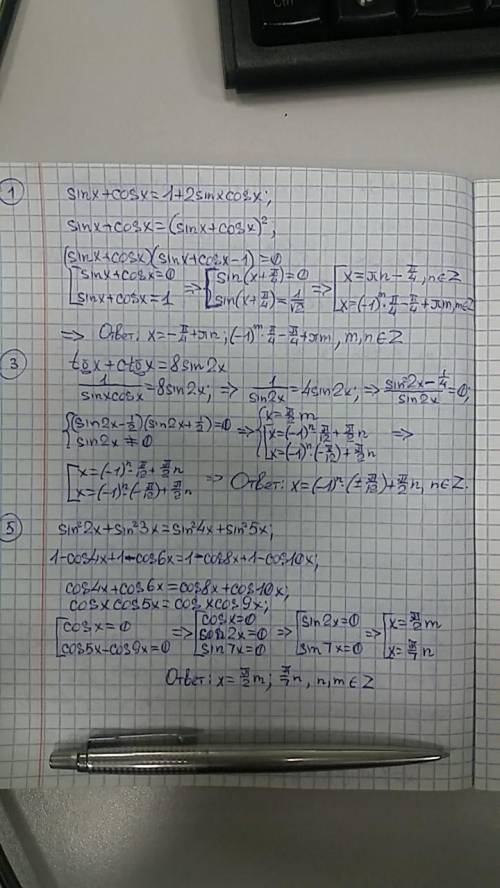 1
sinx+cosx=1+2sinxcosx;
sinx+cosx=(sinx+cosx)²;
(sinx+cosx)(sinx+cosx-1)=0
[sinx+cosx=0 => [sin(x+π/4)=0 => [x=πn-π/4, n∈Z
[sinx+cosx=1 [sin(x+π/4)=1/√2 [x=(-1)^m·π/4-π/4+πm, m∈Z
=> Ответ: x=-π/4+πn; (-1)^m·π/4-π/4+πm, m,n∈Z
3
tgx+ctgx=8sin2x
1/sinxcosx=8sin2x; => 1/sin2x=4sin2x; => sin²2x-1/4/sin2x=0;
{(sin2x-1/2)(sin2x+1/2)=0 => {x≠π/2m
{sin2x≠0 [x=(-1)ⁿ·π/12+π/2n =>
[x=(-1)ⁿ·(-π/12)+π/2n
[x=(-1)ⁿ·π/12+π/2n
[x=(-1)ⁿ·(-π/12)+π/2n => Ответ: x=(-1)ⁿ·(±π/12)+π/2n, n∈Z.
5
sin²2x+sin²3x=sin²4x+sin²5x;
1-cos4x+1-cos6x=1-cos8x+1-cos10x;
cos4x+cos6x=cos8x+cos10x;
cosxcos5x=cosxcos9x;
[cosx=0 => [cosx=0 => [sin2x=0 => [x=π/2m
[cos5x-cos9x=0 [sin2x=0 [sin7x=0 [x=π/7n
[sin7x=0
Ответ: x=π/2m; π/7n, n,m∈Z